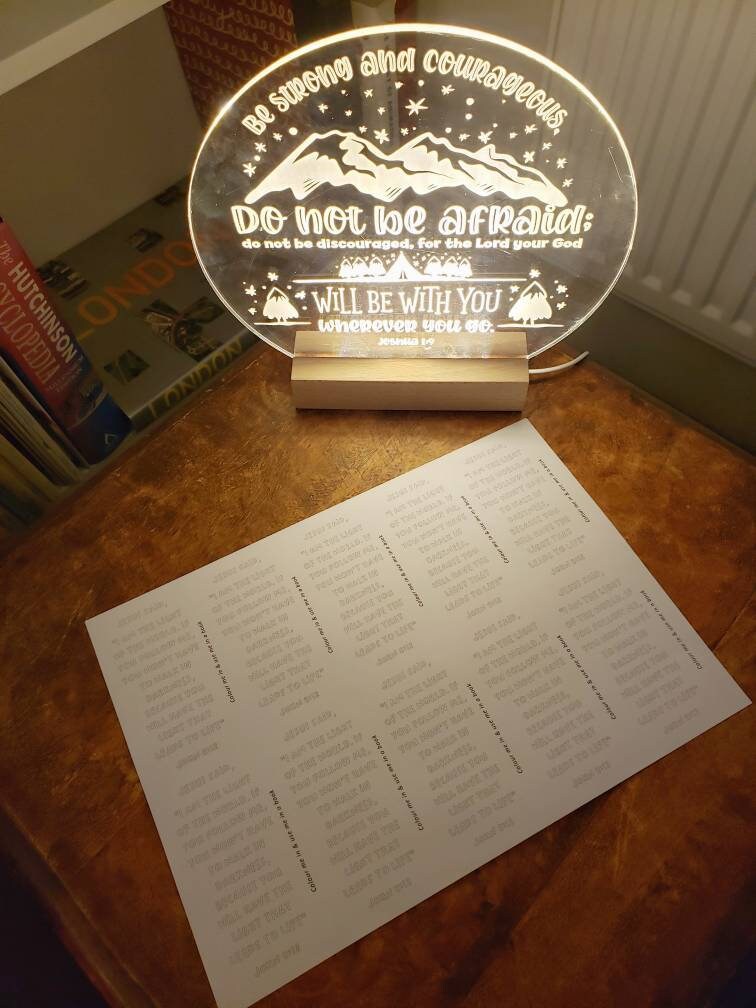 Be strong and courageous.
Do not be afraid;
do not be discouraged, for the Lord your God
WILL BE WITH YOU
wherever you go.
Joshua 1:9
The HUTCHINSON
LONDON
LONDON
JESUS SAID,
"I AM THE LIGHT
OF THE WORLD. IF
YOU FOLLOW ME,
YOU WON'T HAVE
TO WALK IN
DARKNESS,
BECAUSE YOU
WILL HAVE THE
LIGHT THAT
LEADS TO LIFE"
JOHN 8:12
Colour me in & use me in a book
JESUS SAID,
"I AM THE LIGHT
OF THE WORLD. IF
YOU FOLLOW ME,
YOU WON'T HAVE
TO WALK IN
DARKNESS,
BECAUSE YOU
WILL HAVE THE
LIGHT THAT
LEADS TO LIFE"
JOHN 8:12
Colour me in & use me in a book
JESUS SAID,
"I AM THE LIGHT
OF THE WORLD. IF
YOU FOLLOW ME,
YOU WON'T HAVE
TO WALK IN
DARKNESS,
BECAUSE YOU
WILL HAVE THE
LIGHT THAT
LEADS TO LIFE"
JOHN 8:12
Colour me in & use me in a book
JESUS SAID,
"I AM THE LIGHT
OF THE WORLD. IF
YOU FOLLOW ME,
YOU WON'T HAVE
TO WALK IN
DARKNESS,
BECAUSE YOU
WILL HAVE THE
LIGHT THAT
LEADS TO LIFE"
JOHN 8:12
Colour me in & use me in a book
Colour me in & use me in a book
JESUS SAID,
"I AM THE LIGHT
OF THE WORLD. IF
YOU FOLLOW ME,
YOU WON'T HAVE
TO WALK IN
DARKNESS,
BECAUSE YOU
WILL HAVE THE
LIGHT THAT
LEADS TO LIFE"
JOHN 8:12
Colour me in & use me in a book
JESUS SAID,
"I AM THE LIGHT
OF THE WORLD. IF
YOU FOLLOW ME,
YOU WON'T HAVE
TO WALK IN
DARKNESS,
BECAUSE YOU
WILL HAVE THE
LIGHT THAT
LEADS TO LIFE"
JOHN 8:12
Colour me in & use me in a book
JESUS SAID,
"I AM THE LIGHT
OF THE WORLD. IF
YOU FOLLOW ME,
YOU WON'T HAVE
TO WALK IN
DARKNESS,
BECAUSE YOU
WILL HAVE THE
LIGHT THAT
LEADS TO LIFE"
JOHN 8:12
Colour me in & use me in a book
JESUS SAID,
"I AM THE LIGHT
OF THE WORLD. IF
YOU FOLLOW ME,
YOU WON'T HAVE
TO WALK IN
DARKNESS,
BECAUSE YOU
WILL HAVE THE
LIGHT THAT
LEADS TO LIFE"
JOHN 8:12
Colour me in & use me in a book
Colour me in & use me in a book